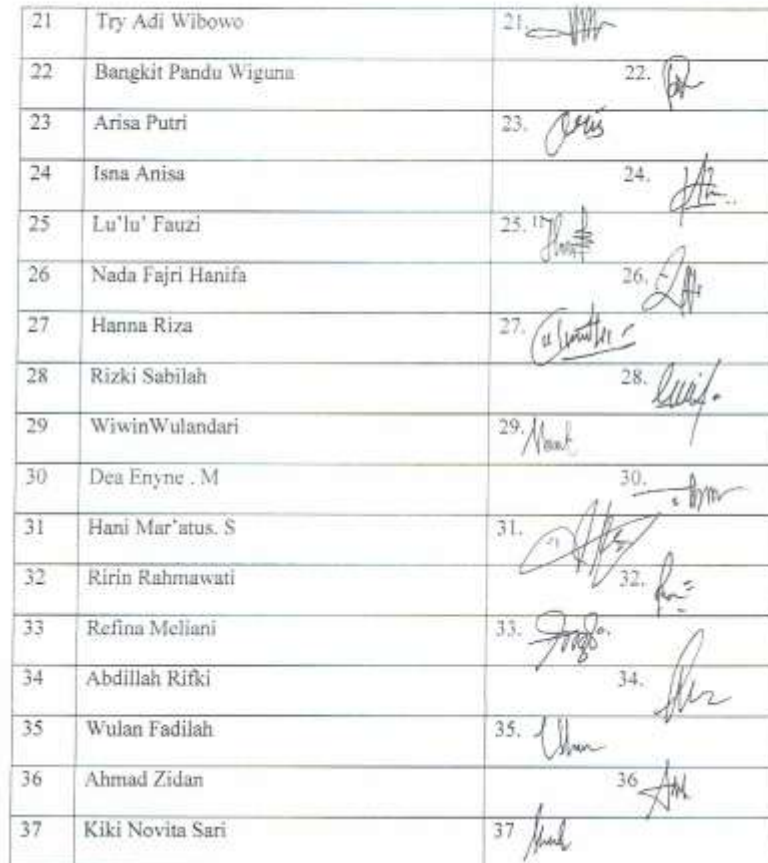 21 Try Adi Wibowo 21.
22 Bangkit Pandu Wiguna 22.
23 Arisa Putri 23.
24 Isna Anisa 24.
25 Lu'lu' Fauzi 25.
26 Nada Fajri Hanifa 26.
27 Hanna Riza 27.
28 Rizki Sabilah 28.
29 WiwinWulandari 29.
30 Dea Enyne . M 30.
31 Hani Mar'atus. S 31.
32 Ririn Rahmawati 32.
33 Refina Meliani 33.
34 Abdillah Rifki 34.
35 Wulan Fadilah 35.
36 Ahmad Zidan 36
37 Kiki Novita Sari 37